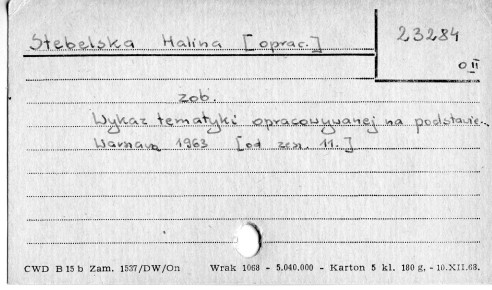 Stebelska Halina [oprac.]
23284
O II
zob.
Wykaz tematyki opracowywanej na podstawie..
Warszawa 1963 [od zesz. 11.]
CWD B 15 b Zam. 1537/DW/On Wrak 1068 - 5.040.000 - Karton 5 kl. 180 g. - 10.XII.68.